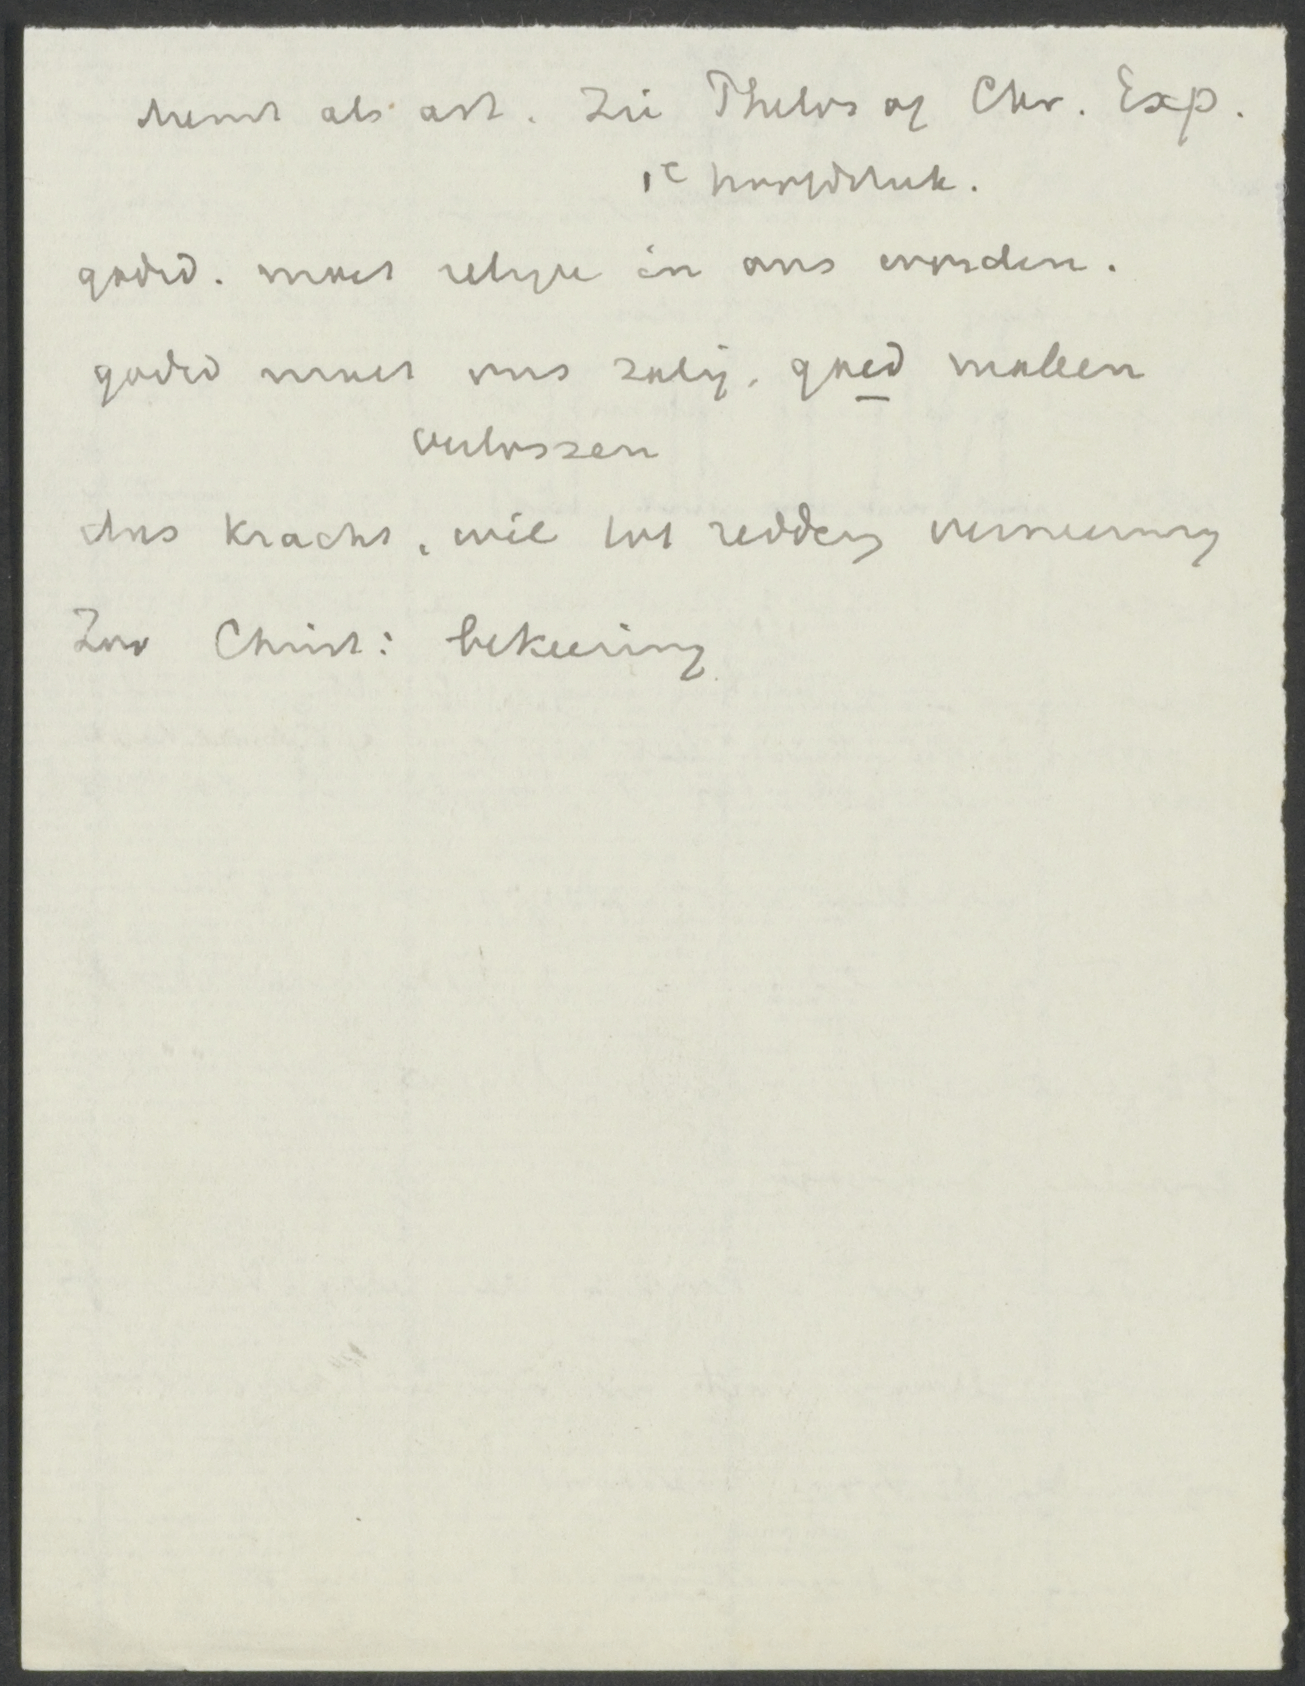 dienst als art. Zie Philos of Chr. Exp.
1e hoofdstuk.
godsd. moet religie in ons worden.
godsd moet ons zalig, goed maken
verlossen
dus kracht, wil tot redding vernieuwing
Zoo Christ: bekeering